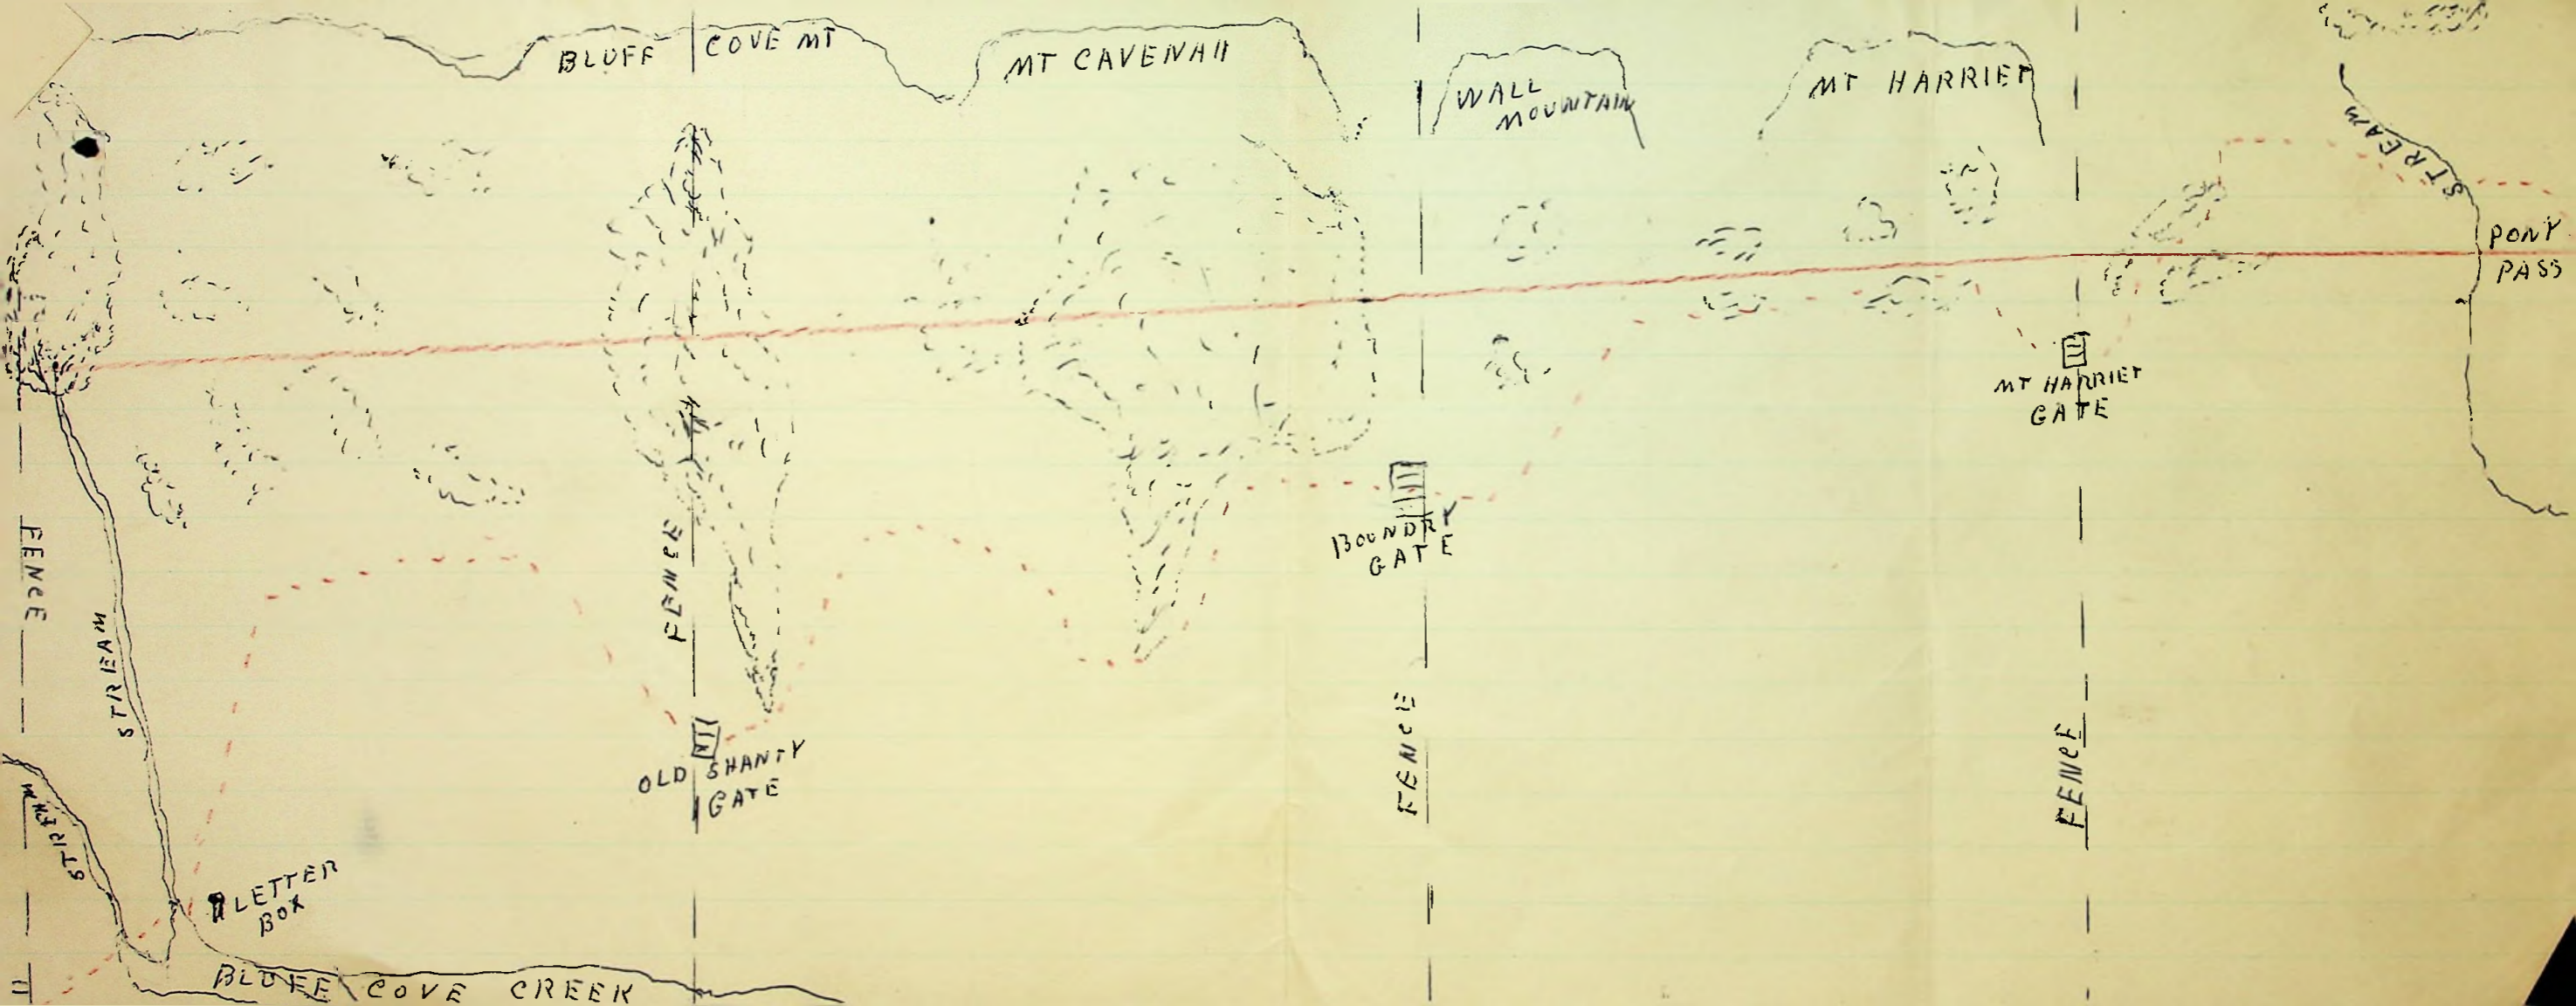 BLUFF COVE MT
MT CAVENAH
WALL
MOUNTAIN
MT HARRIET
STREAM
PONY
PASS
MT HARRIET
GATE
BOUNDRY
GATE
FENCE
FENCE
FENCE
FENCE
STREAM
OLD SHANTY
GATE
STREAM
LETTER
BOX
BLUFF COVE CREEK